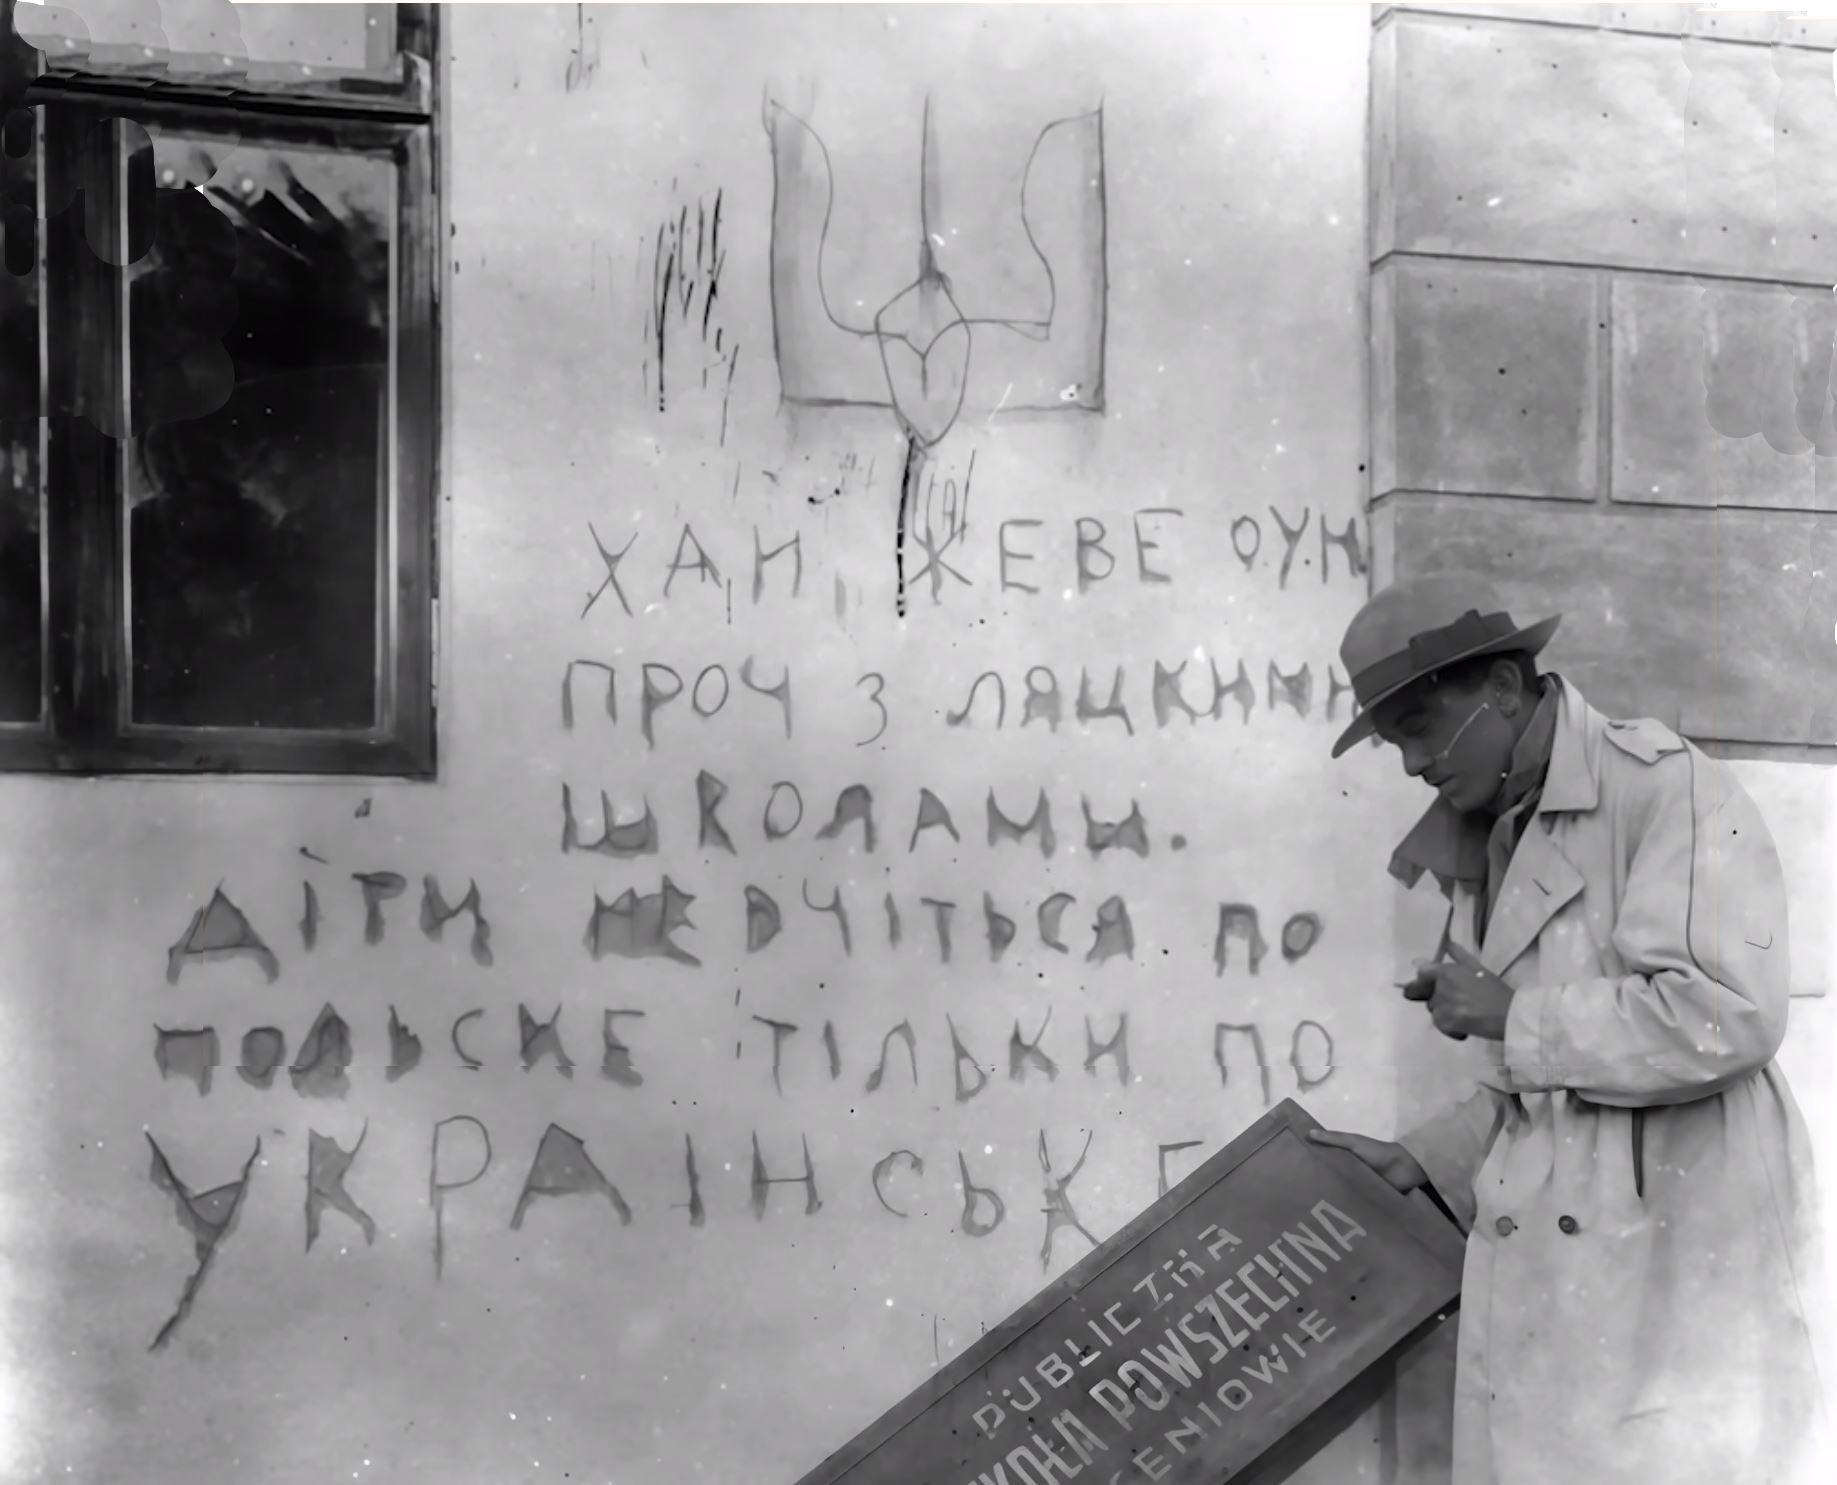 ХАН ЖЕВЕ ОУН
ПРОЧ З ЛЯЦКИМИ
ШКОЛАМЫ.
ДІТИ НЕ ВЧІТЬСЯ ПО
ПОЛЬСКЕ ТІЛЬКИ ПО
УКРАІНСЬКЕ
PUBLICZNA
SZKOŁA POWSZECHNA